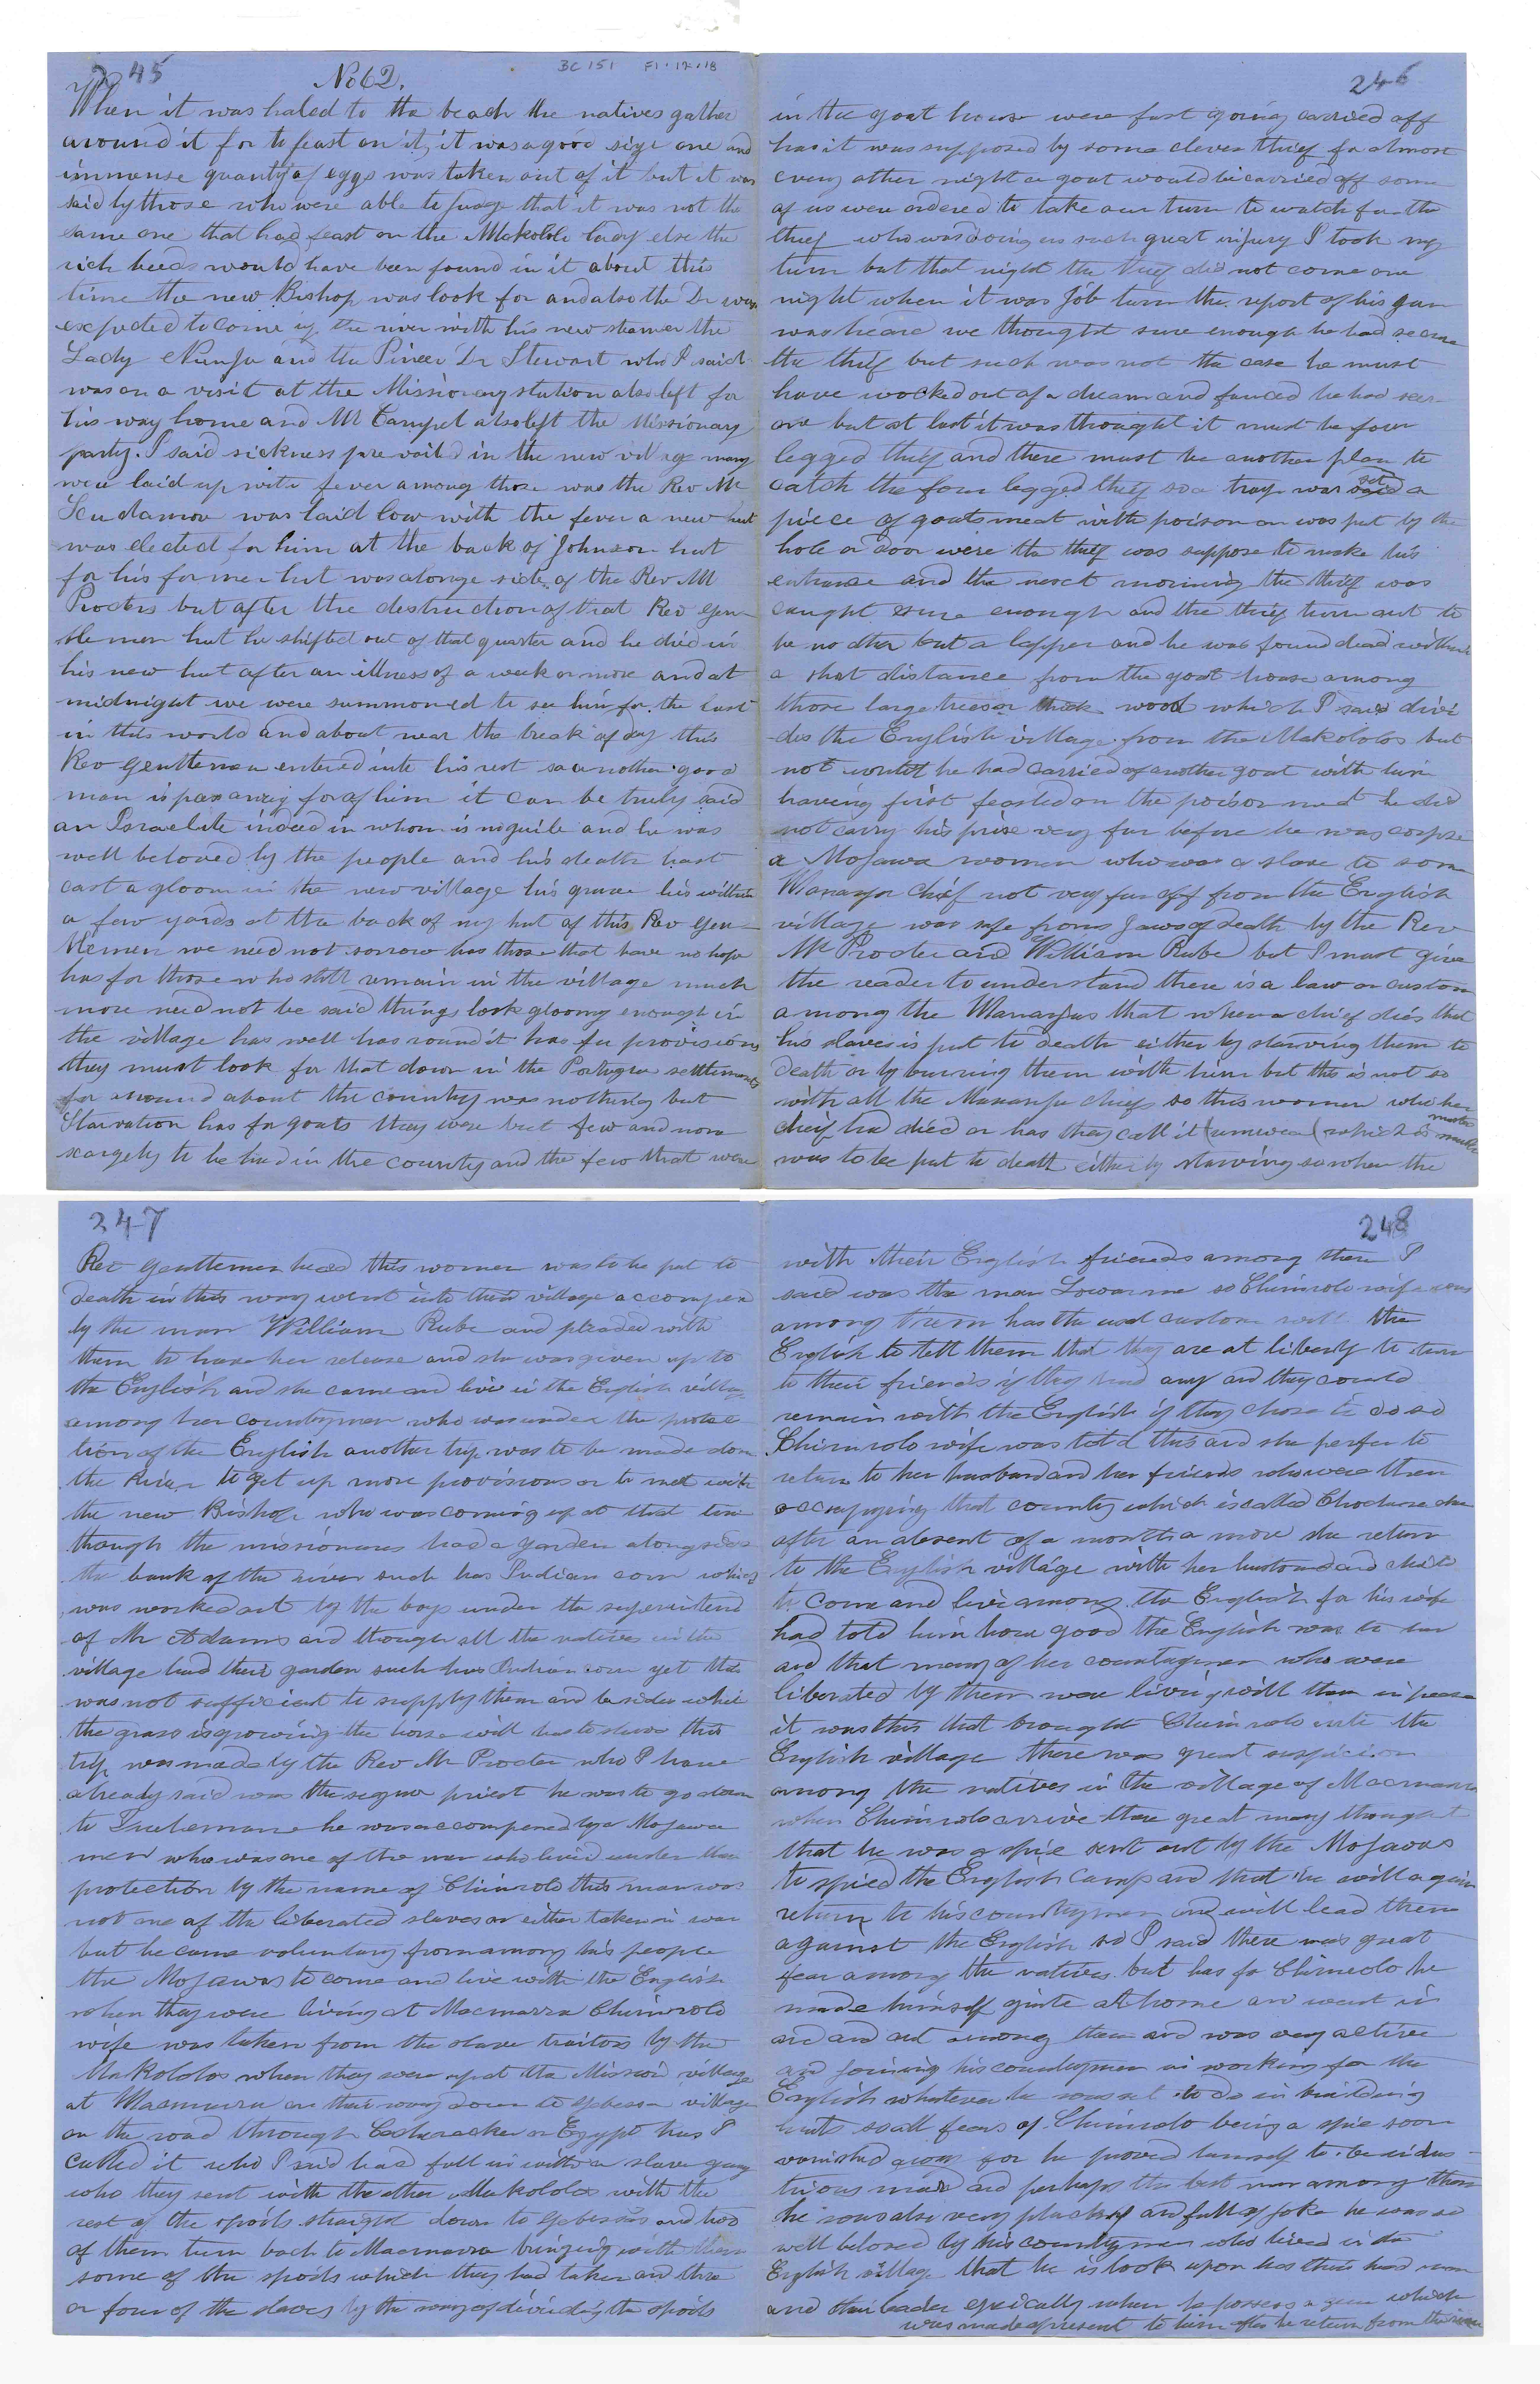 245
No 62.
BC 151 F1.12.118
When it was haled to the beach the natives gather
around it for to feast on it, it was a good size one and
immense quantity of eggs was taken out of it but it was
said by those who were able to judge that it was not the
same one that had feast on the Makololo lady else the
rich beeds would have been found in it about this
time the new Bishop was look for and also the Dr was
expected to come up the river with his new steamer the
Lady and the Pineer Dr Stewart who I said
was on a visit at the Missionary station also left for
his way home and Mr also left the Missionary
party. I said sickness prevailed in the new village many
were laid up with fever among those was the Rev Mr
Scudamore was laid low with the fever a new hut
was elected for him at the back of Johnson hut
for his former hut was alonge side of the Rev Mr
Procters but after the destruction of that Rev Gen-
tlemen hut he shifted out of that quarter and he died in
his new hut after an illness of a week or more and at
midnight we were summoned to see him for the last
in this world and about near the break of day this
Rev gentlemen entered into his rest so another good
man is pass away for of him it can be truly said
an Israelite indeed in whom is no guile and he was
well beloved by the people and his death hast
cast a gloom in the new village his grave his within
a few yards at the back of my hut of this Rev Gen-
tlemen we need not sorrow has those that have no hope
has for those who still remain in the village much
more need not be said things look gloomy enough in
the village has well has round it has for provisions
they must look for that down in the Portugue settlements
for around about the country was nothing but
Starvation has for goats they were but few and now
scargely to be had in the country and the few that were
246
in the goat house were fast going carried off
has it was supposed by some clever thief for almost
every other night a goat would be carried off some
of us were ordered to take our turn to watch for the
thief who was doing us such great injury I took my
turn but that night the thief did not come one
night when it was Job turn the report of his gun
was heard we thought sure enough he had
the thief but such was not the case he must
have wocked out of a dream and fancied he had seen
one but at last it was thought it must be four
legged thief and there must be another plan to
catch the four legged thief so a trap was set a
piece of goats meat with poison on was put by the
hole or door were the thief was suppose to make his
entrance and the next morning the thief was
caught sure enough and the thief turn out to
be no other but a lepper and he was found dead within
a shot distance from the goat house among
those large trees or thick wood which I said divi
des the English village from the Makololos but
not he had carried of another goat with him
having first feasted on the poison meat he did
not carry his prise very far before he was corpse
a Mojawa women who was a slave to some
Mananja chief not very far off from the English
village was safe from Jaws of death by the Rev
Mr Procter and William Rube but I must give
the reader to understand there is a law or custom
among the Mananjas that when a chief dies that
his slaves is put to death either by starving them to
death or by burning them with him but this is not so
with all the Mananja chiefs so this women who her
cheif had died or has they call it which is
was to be put to death either by starving so when the
247
Rev gentlemen heard this women was to be put to
death in this way went into their village accompened
by the man William Rube and pleaded with
them to have her release and she was given up to
the English and she came and live in the English village
among her countrymen who was under the protec
tion of the English another trip was to be made down
the River to get up more provisions or to met with
the new Bishop who was coming up at that time
though the missionares had a garden alongside
the bank of the river such has Indian corn which
was worked out by the boys under the superintend
of Mr Adams and though all the natives in the
village had their garden such has Indian corn yet this
was not sufficient to supply them and besides while
the grass is growing the horse will has to starve this
trip was made by the Rev Mr Procter who I have
already said was the priest he was to go down
to he was accompened by a Mojawa
men who was one of the men who lived under their
protection by the name of Chimwolo this man was
not one of the liberated slaves or either taken in war
but he came voluntary from among his people
the Mojawas to come and live with the English
when they were living at Macmarra Chimwolo
wife was taken from the slave traitors by the
Makololos when they were up at the Mission village
at Macmarra on their way down to village
on the road through or Egypt has I
called it who I said had fell in with a slave gang
who they sent with the other Makololos with the
rest of the spoils straight down to and two
of them turn back to Macmarra bringing with them
some of the spoils which they had taken and three
or four of the slaves by the way of dividing the spoils
248
with their English friends among them I
said was the man so Chimwolo wife was
among them has the usal custom with the
English to tell them that they are at liberty to turn
to their friends if they had any and they could
remain with the English if they chose to do so
Chimwolo wife was told this and she perfer to
return to her husband and her friends who were then
occupying that country which is called
after an absent of a month or more she return
to the English village with her husband and child
to come and live among the English for his wife
had told him how good the English was to her
and that many of her countrymen who were
liberated by them were living with them in peace
it was this that brought Chimwolo into the
English village there was great suspicion
among the natives in the village of Macmarra
when Chimwolo arrive there great many thought
that he was a spie sent out by the Mojawas
to spied the English camp and that he will again
return to his countrymen and will lead them
against the English so I said there was great
fear among the natives but has for Chimwolo he
made himself quite at home and went in
and out among them and was very active
and joining his countrymen in working for the
English whatever he was set to do in building
huts so all fears of Chimwolo being a spie soon
vanished away for he proved himself to be indus-
trious man and perhaps the best man among them
he was also very and full of joke he was so
well beloved by his countrymen who lived in the
English village that he is look upon has their head man
and their leader especally when he possess a gun which
was made a present to him after he return from the river